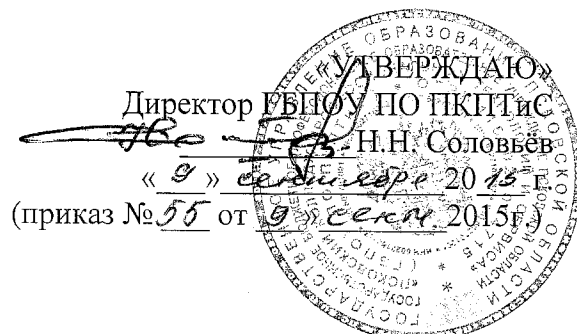 «УТВЕРЖДАЮ»
Директор ГБПОУ ПО ПКПТиС
Н.Н. Соловьёв
« 9 » сентября 20 15 г.
(приказ № 55 от 9 » сент 2015г.)